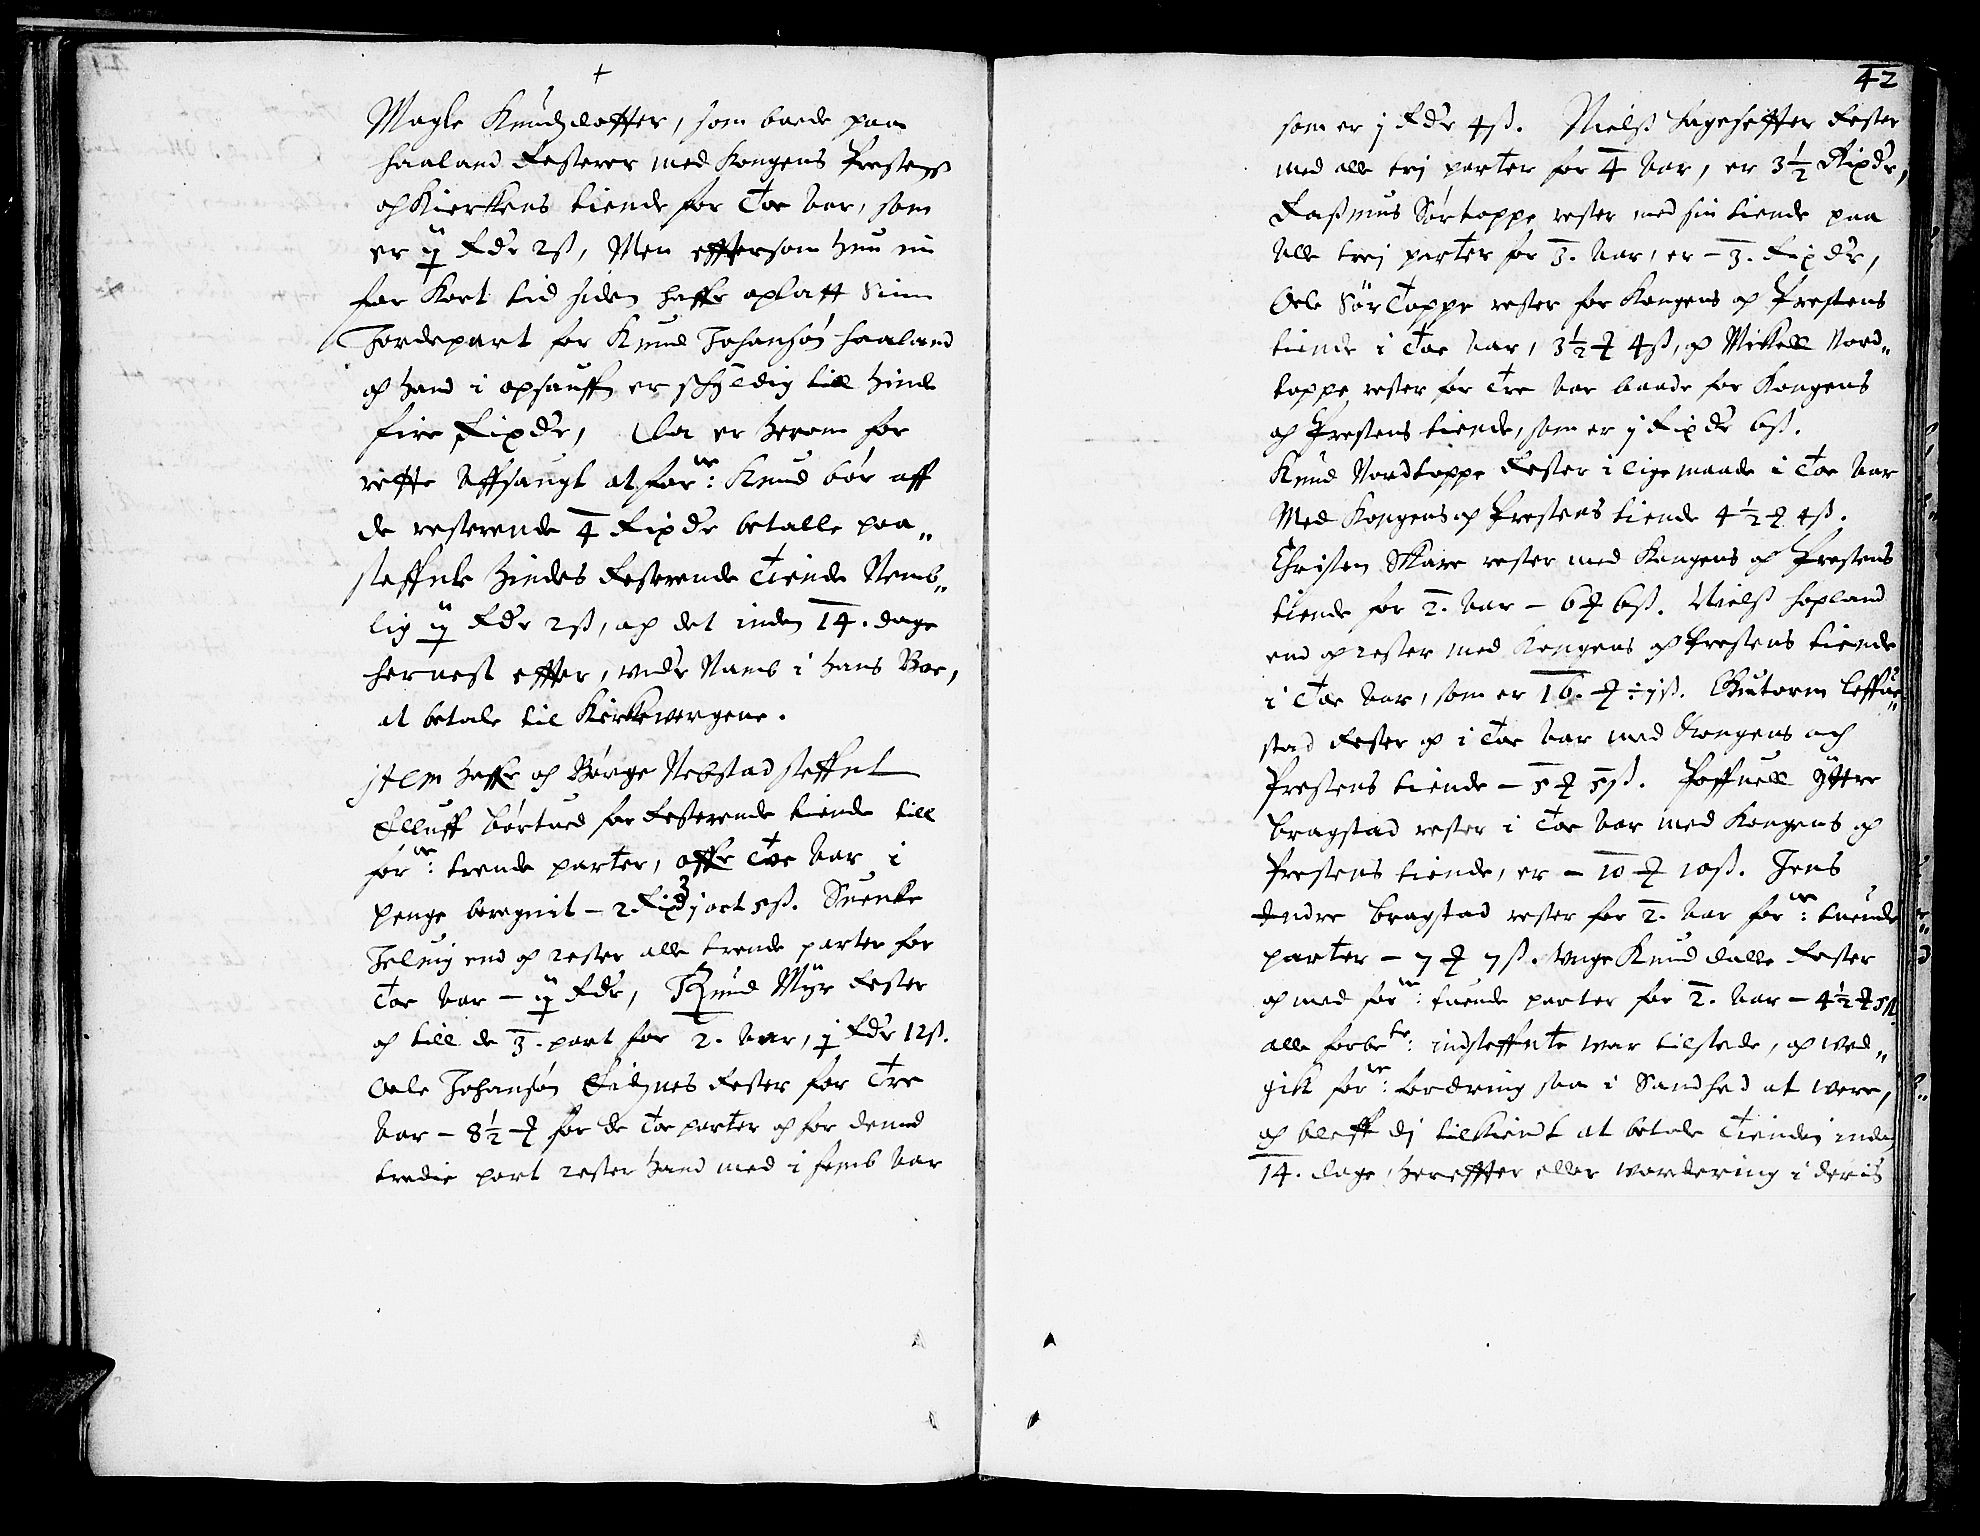 +
Magle Knudzdotter, som boede paa
Haaland Resterer med Kongens Prestens
och Kierkens tiende for Toe Aar, som
er ij Rdr 2ß, Men effterson hun nu
for Kort tid siden haffr oplatt Sinn
Jordepart for Knud Johansøn Haaland
och hand i opsauffn er schyldig till hinde
fire Rixdr, Da er herom for
rette Affsaugt at forne: Knud bør aff
de resterende 4 Rixdr betalle paa„
steffnte hindes Resterende Tiende Nemb„
lig ij Rdr 2ß, och det inden 14. dage
hernest effter, vnder Namb i hans Boe,
at betale til Kirkewergene.
Item haffr och Børge Nebstad steffnt
Elluff børtued for Resterende tiende till
forne: trende parter, offr Toe Aar i
penge beregnit - 2. Rixdr 3 ort 5ß. Suenke
Jeluig end och rester alle trende parter for
Toe Aar - ij Rdr, Knud Myr Rester
och till de 3. part for 2. Aar, j Rdr 12ß.
Oele Johansøn Eidznes Rester for Tre
Aar - 8½ ₰ for de Toe parter och for denned
tredie part rester hand med i femb Aar
42
som er j Rdr 4ß. Nielß Hageseffter Rester
med alle trej parter for 4 Aar, er 3½ Rixdr,
Rasmus Sørtoppe rester med sin tiende paa
Alle trej parter for 3. Aar, er - 3. Rixdr,
Oele SørToppe rester for Kongens och Prestens
tiende i Toe Aar, 3½ ₰ 4ß, och Mikkell Nord„
toppe rester for Tre Aar baade for Kongens
och Prestens tiende, som er j Rixdr 6ß.
Knud Nordtoppe Rester i lige maade i Toe Aar
Med Kongens och Prestens tiende 4½ ₰ 4ß.
Christen Skare rester med Kongens och Prestens
tiende for 2. Aar - 6 ₰ 6ß. Nielß Hopland
end och rester med Kongens och Prestens tiende
i Toe Aar, som er 16. ₰ ÷ 7ß. Gutorm Leffue„
stad Rester och i Toe Aar med Kongens och
Prestens tiende - 5 ₰ 5ß. Poffuell Yttre
bragstad rester i Toe Aar med Kongens och
Prestens tiende, er - 10 ₰ 10ß. Jens
Indre bragstad rester for 2. Aar forne: tuende
parter - 7 ₰ 7ß. Unge Knud Dalle Rester
och med forne: tuende parter for 2. Aar - 4½ ₰ 5ß.
alle forbete: indsteffnte war tilstede, och wed„
gik forne: fordring saa i Sandhed at were,
och bleff dj tilkiendt at betale Tienden inden
14. dage hereffter eller wordering i deris